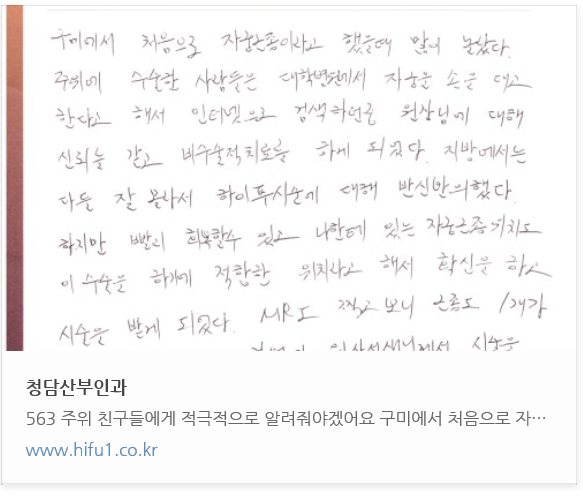 구미에서 처음으로 자궁근종이라고 했을때 많이 놀랐다.
주위에 수술한 사람들은 대학병원에서 자궁을 손을 대고
한다고 해서 인터넷으로 검색하던중 원장님에 대해
신뢰를 갖고 비수술적치료를 하게 되었다. 지방에서는
다들 잘 몰라서 하이푸시술에 대해 반신반의했다.
하지만 빨리 회복할수 있고 나한테 있는 자궁근종 위치도
이 수술을 하기에 적합한 위치라고 해서 확신을 하고
시술을 받게 되었다. MRI도 찍고 보니 근종도 1개가
원장선생님께서 시술을
청담산부인과
563 주위 친구들에게 적극적으로 알려줘야겠어요 구미에서 처음으로 자···
www.hifu1.co.kr